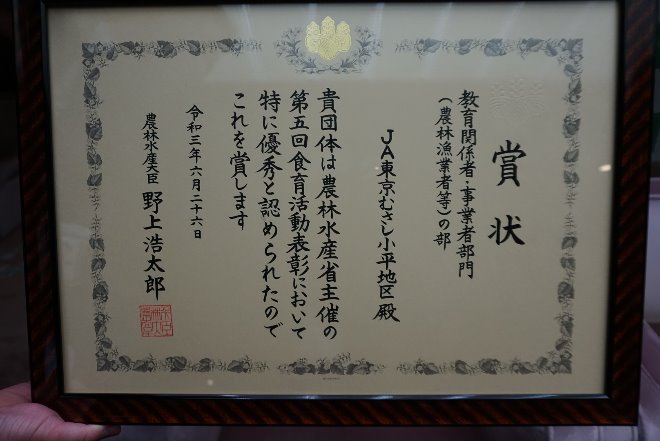 賞状
教育関係者・事業者部門
(農林漁業者等)の部
JA東京むさし小平地区殿
貴団体は農林水産省主催の
第五回食育活動表彰において
特に優秀と認められたので
これを賞します
令和三年六月二十六日
農林水産大臣 野上浩太郎